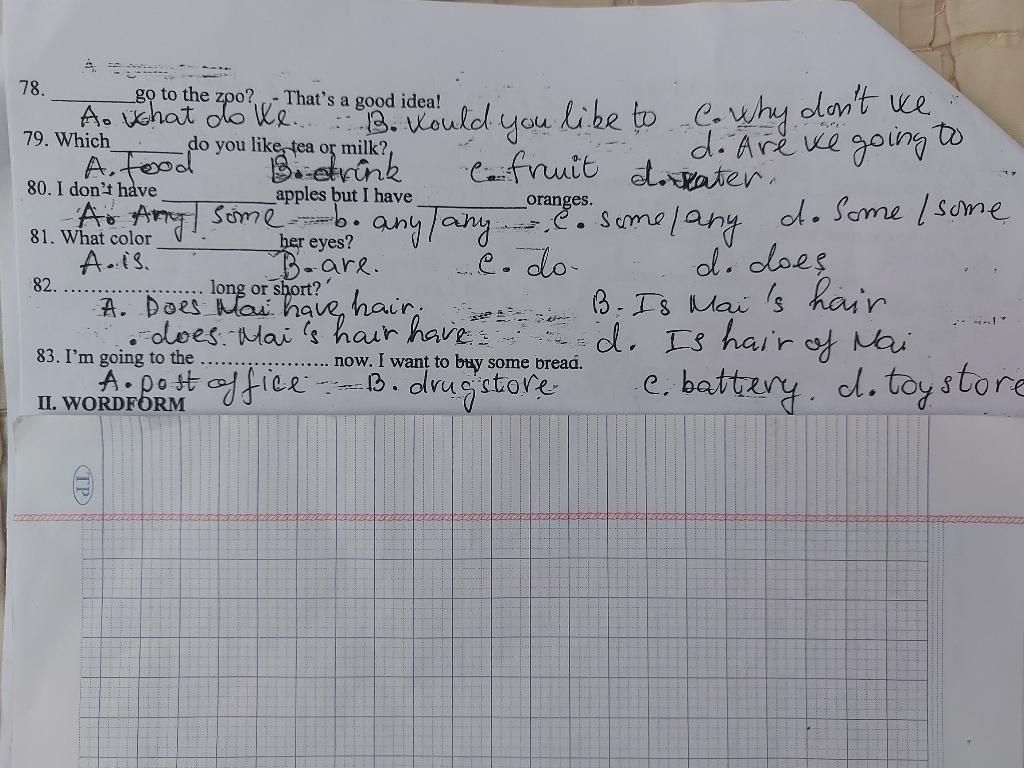 78. ________go to the zoo? - That's a good idea!
A. what do we. B. Would you like to C. why don't we
d. Are we going to
79. Which ________ do you like, tea or milk?
A. food B. drink C. fruit d. water.
80. I don't have ____________ apples but I have ___________ oranges.
A. Any / some b. any / any C. some / any d. Some / some
81. What color _____________ her eyes?
A. is. B. are. C. do d. does
82. ………………… long or short?
A. Does Mai have hair. B. Is Mai's hair
. does Mai's hair have d. Is hair of Mai
83. I'm going to the ……………….. now. I want to buy some bread.
A. post office B. drugstore C. battery. d. toystore
II. WORDFORM
TP